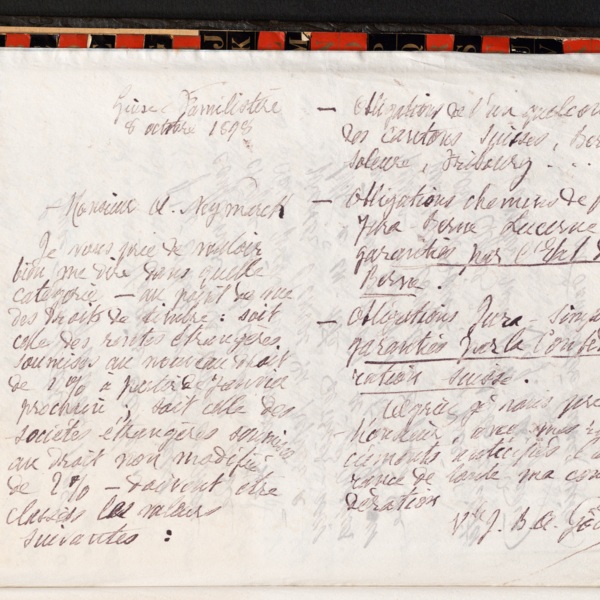 Guise-Familistère
8 octobre 1898
– Monsieur A. Neymarck
Je vous prie de vouloir
bien me dire dans quelle
catégorie – au point de vue
des droits de timbre : soit
celle des rentes étrangères
soumises au nouveau droit
de 1 % à partir de Janvier
prochain ; soit celle des
sociétés étrangères soumises
au droit non modifié
de 2 % – doivent être
classées les valeurs
suivantes :
– Obligations de l'un
des Cantons Suisses, Ber
Soleure, Fribourg . . .
– Obligations chemins de f
Jura-Berne Lucerne
garanties par l'Etat d
Berne.
– Obligations Jura-Simp
garanties par la Confé
ration Suisse.
je vous pr
Monsieur, avec mes r
ciements anticipés l'a
rance de toute ma con
dération
Vve J. B. A. God
J K M P Q R S U V